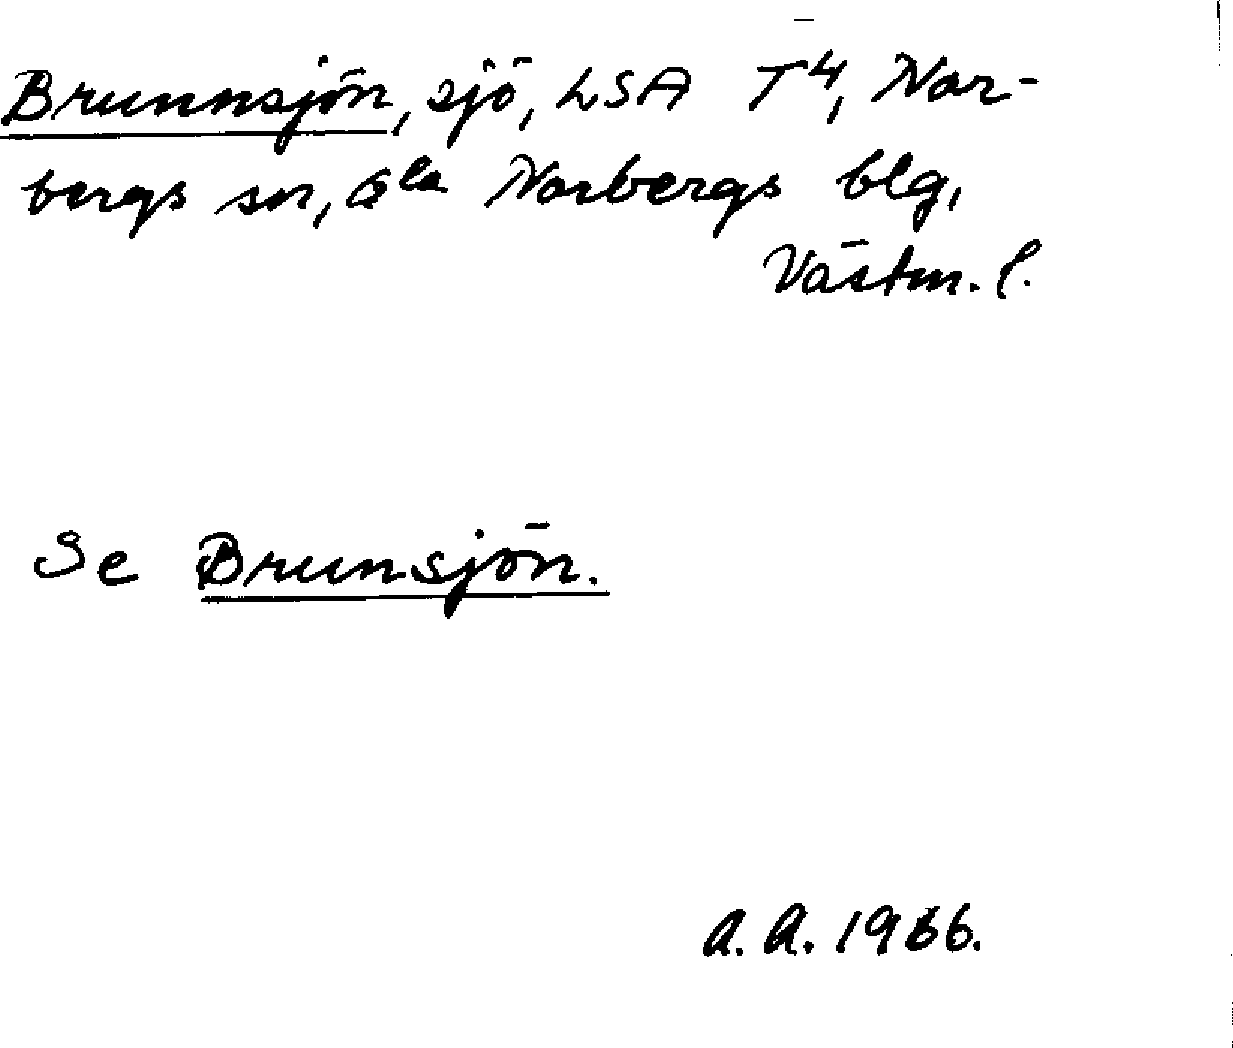 Brunnsjön, sjö, LSA T4, Nor-
bergs sn, Gla Norbergs blg,
Västm. l.
Se Brunsjön.
A. A. 1966.